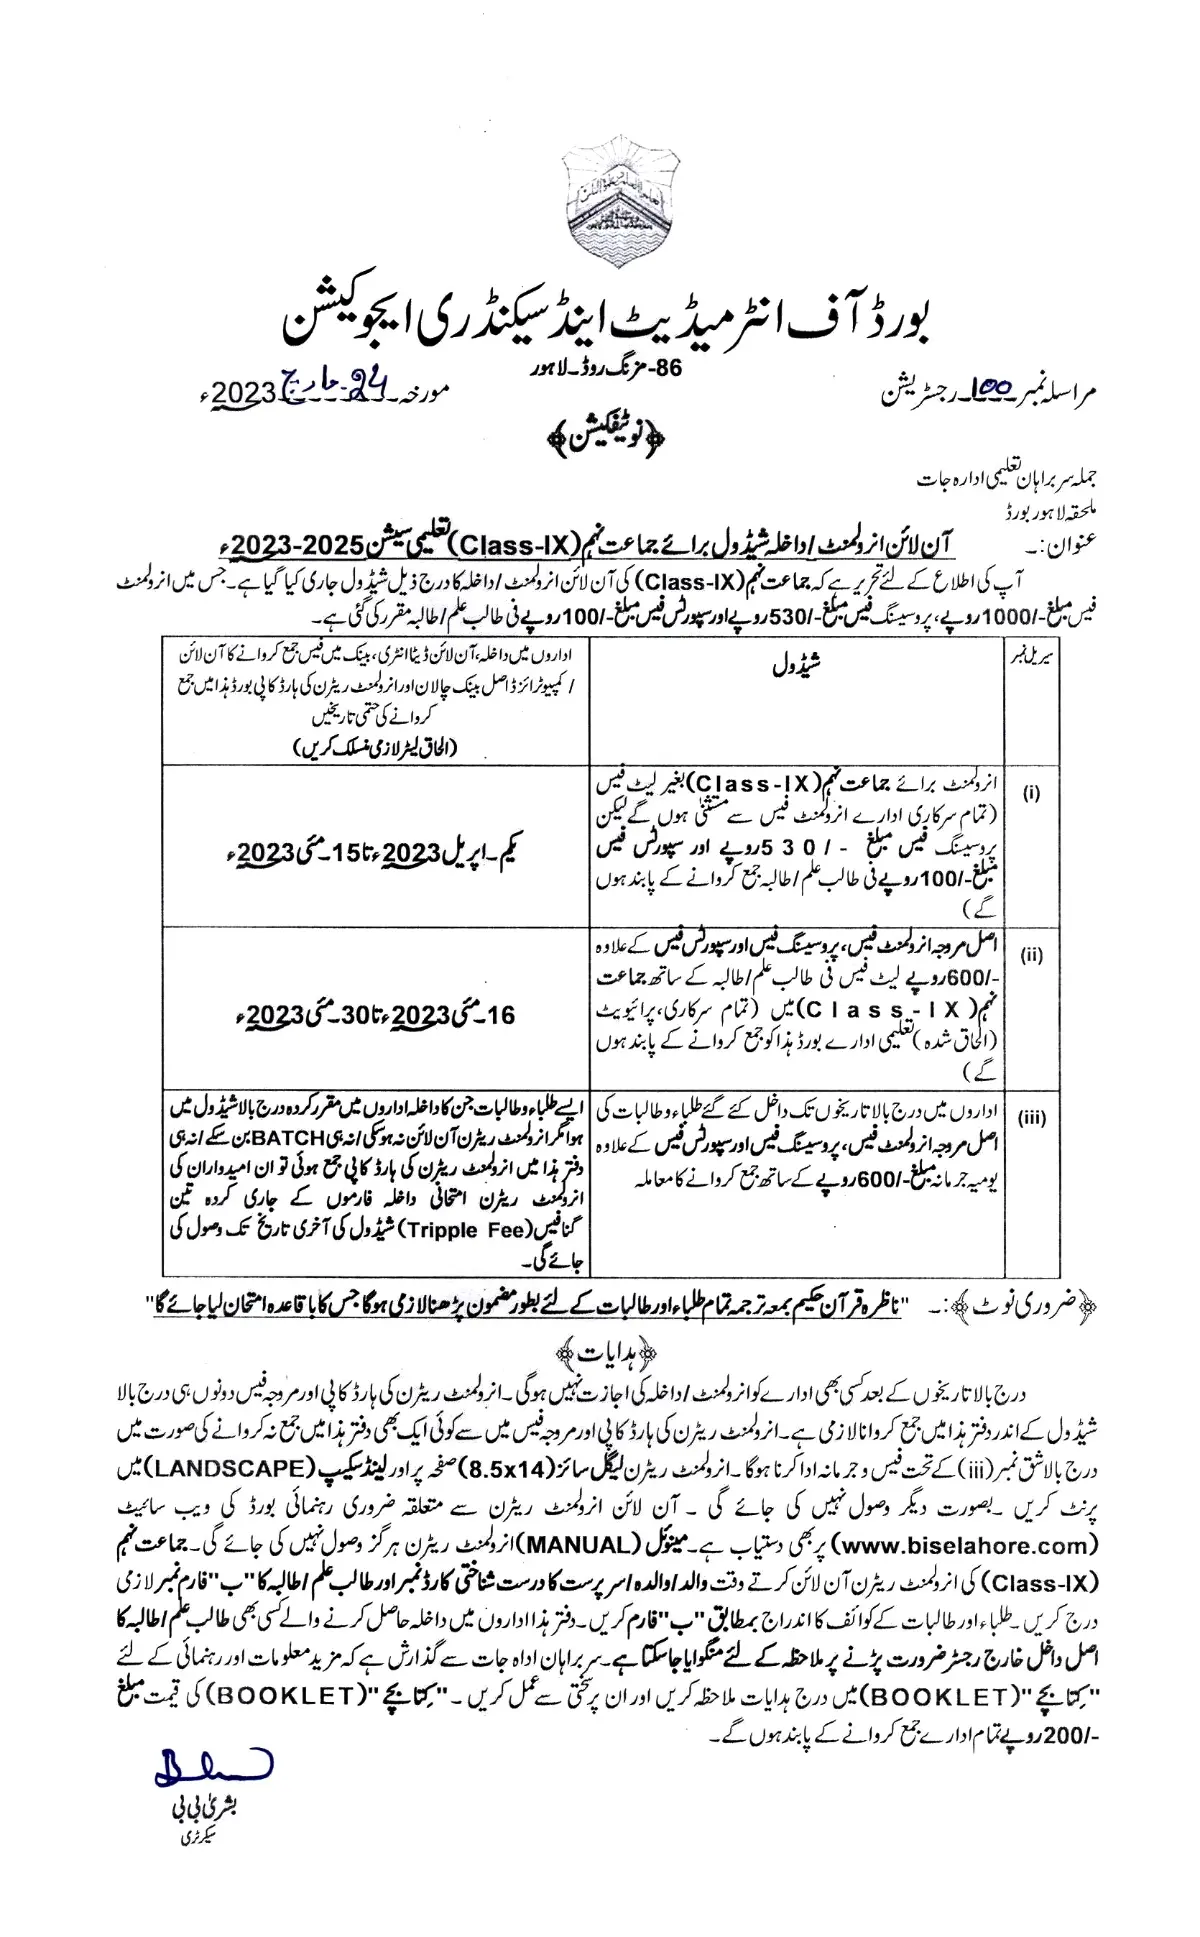 بورڈ آف انٹرمیڈیٹ اینڈ سیکنڈری ایجوکیشن
86-مزنگ روڈ۔لاہور
مراسلہ نمبر 100 رجسٹریشن
مورخہ 24 مارچ 2023ء
﴿نوٹیفکیشن﴾
جملہ سربراہان تعلیمی ادارہ جات
ملحقہ لاہور بورڈ
عنوان:۔ آن لائن انرولمنٹ/داخلہ شیڈول برائے جماعت نہم(Class-IX) تعلیمی سیشن 2025-2023ء
آپ کی اطلاع کے لئے تحریر ہے کہ جماعت نہم(Class-IX) کی آن لائن انرولمنٹ/داخلہ کا درج ذیل شیڈول جاری کیا گیا ہے۔جس میں انرولمنٹ
فیس مبلغ-/1000روپے، پروسیسنگ فیس مبلغ-/530روپے اور سپورٹس فیس مبلغ-/100روپے فی طالب علم/طالبہ مقرر کی گئی ہے۔
سیریل نمبر
شیڈول
اداروں میں داخلہ، آن لائن ڈیٹا انٹری، بینک میں فیس جمع کروانے کا آن لائن
/کمپیوٹرائزڈ اصل بینک چالان اور انرولمنٹ ریٹرن کی ہارڈ کاپی بورڈ ہذا میں جمع
کروانے کی حتمی تاریخیں
(الحاق لیٹر لازمی منسلک کریں)
(i)
انرولمنٹ برائے جماعت نہم(Class-IX) بغیر لیٹ فیس
(تمام سرکاری ادارے انرولمنٹ فیس سے مستثنیٰ ہوں گے لیکن
پروسیسنگ فیس مبلغ -/530روپے اور سپورٹس فیس
مبلغ-/100روپے فی طالب علم/طالبہ جمع کروانے کے پابند ہوں
گے)
یکم-اپریل 2023ء تا 15-مئی 2023ء
(ii)
اصل مروجہ انرولمنٹ فیس، پروسیسنگ فیس اور سپورٹس فیس کے علاوہ
-/600روپے لیٹ فیس فی طالب علم/طالبہ کے ساتھ جماعت
نہم(Class-IX) میں (تمام سرکاری، پرائیویٹ
(الحاق شدہ) تعلیمی ادارے بورڈ ہذا کو جمع کروانے کے پابند ہوں
گے)
16-مئی 2023ء تا 30-مئی 2023ء
(iii)
اداروں میں درج بالا تاریخوں تک داخل کئے گئے طلباء و طالبات کی
اصل مروجہ انرولمنٹ فیس، پروسیسنگ فیس اور سپورٹس فیس کے علاوہ
یومیہ جرمانہ مبلغ-/600روپے کے ساتھ جمع کروانے کا معاملہ
ایسے طلباء و طالبات جن کا داخلہ اداروں میں مقرر کردہ درج بالا شیڈول میں
ہوا مگر انرولمنٹ ریٹرن آن لائن نہ ہو سکی/نہ ہی BATCH بن سکے/نہ ہی
دفتر ہذا میں انرولمنٹ ریٹرن کی ہارڈ کاپی جمع ہوئی تو ان امیدواران کی
انرولمنٹ ریٹرن امتحانی داخلہ فارموں کے جاری کردہ تین
گنا فیس(Tripple Fee) شیڈول کی آخری تاریخ تک وصول کی
جائے گی۔
﴿ضروری نوٹ﴾:۔ "ناظرہ قرآن حکیم بمعہ ترجمہ تمام طلباء اور طالبات کے لئے بطور مضمون پڑھنا لازمی ہوگا جس کا باقاعدہ امتحان لیا جائے گا"
﴿ہدایات﴾
درج بالا تاریخوں کے بعد کسی بھی ادارے کو انرولمنٹ/داخلہ کی اجازت نہیں ہوگی۔انرولمنٹ ریٹرن کی ہارڈ کاپی اور مروجہ فیس دونوں ہی درج بالا
شیڈول کے اندر دفتر ہذا میں جمع کروانا لازمی ہے۔انرولمنٹ ریٹرن کی ہارڈ کاپی اور مروجہ فیس میں سے کوئی ایک بھی دفتر ہذا میں جمع نہ کروانے کی صورت میں
درج بالا شق نمبر(iii) کے تحت فیس و جرمانہ ادا کرنا ہوگا۔انرولمنٹ ریٹرن لیگل سائز(8.5x14) صفحہ پر اور لینڈ سکیپ(LANDSCAPE) میں
پرنٹ کریں ۔بصورت دیگر وصول نہیں کی جائے گی ۔ آن لائن انرولمنٹ ریٹرن سے متعلقہ ضروری رہنمائی بورڈ کی ویب سائیٹ
(www.biselahore.com) پر بھی دستیاب ہے۔مینوئل (MANUAL) انرولمنٹ ریٹرن ہرگز وصول نہیں کی جائے گی۔جماعت نہم
(Class-IX) کی انرولمنٹ ریٹرن آن لائن کرتے وقت والد/والدہ/سرپرست کا درست شناختی کارڈ نمبر اور طالب علم/طالبہ کا "ب" فارم نمبر لازمی
درج کریں۔طلباء اور طالبات کے کوائف کا اندراج بمطابق "ب" فارم کریں۔دفتر ہذا اداروں میں داخلہ حاصل کرنے والے کسی بھی طالب علم/طالبہ کا
اصل داخل خارج رجسٹر ضرورت پڑنے پر ملاحظہ کے لئے منگوایا جا سکتا ہے۔سربراہان اداہ جات سے گذارش ہے کہ مزید معلومات اور رہنمائی کے لئے
"کتابچے"(BOOKLET) میں درج ہدایات ملاحظہ کریں اور ان پر سختی سے عمل کریں ۔"کتابچے"(BOOKLET) کی قیمت مبلغ
-/200روپے تمام ادارے جمع کروانے کے پابند ہوں گے۔
بشریٰ بی بی
سیکرٹری